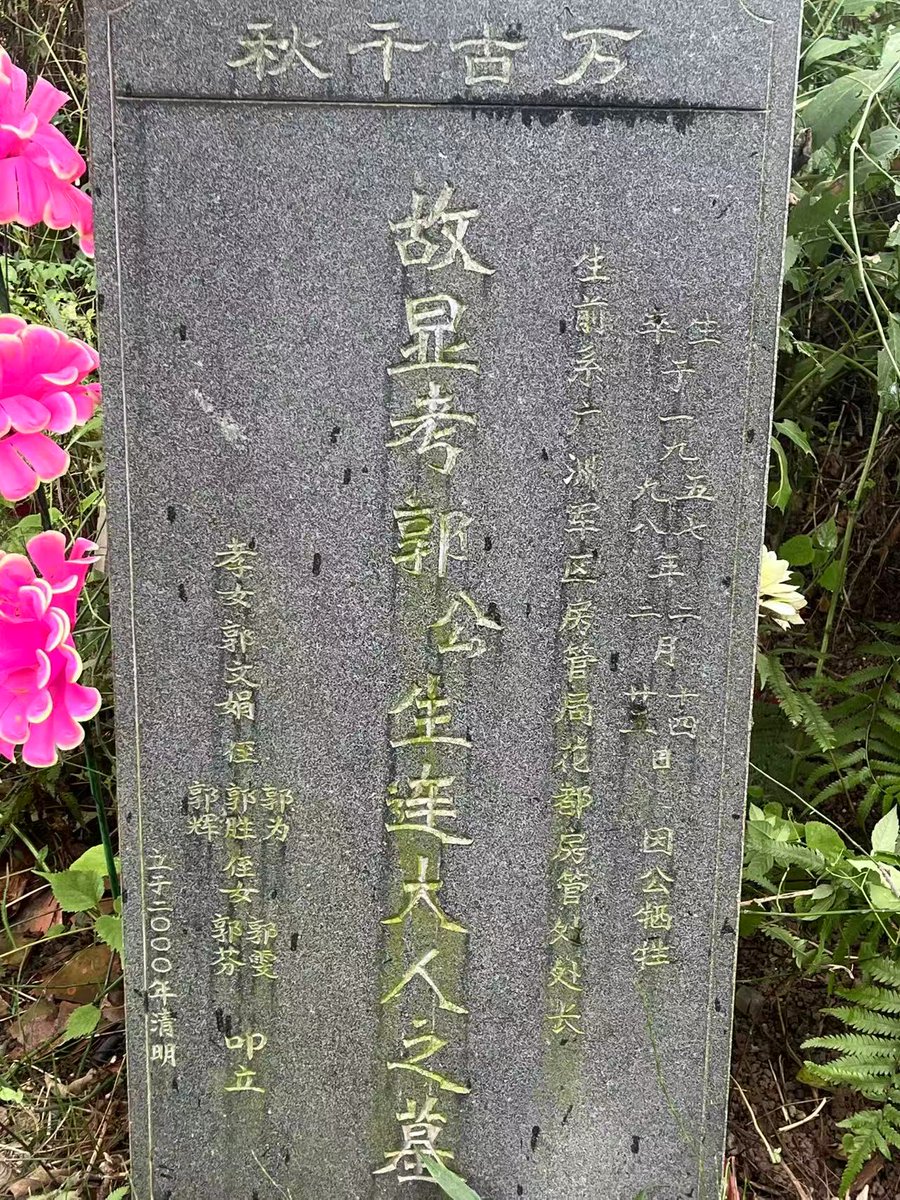 万古千秋
生卒于一九五七九八年二二月十四廿五日 因公牺牲
生前系广洲军区房管局花都房管处处长
故显考郭公生连大人之墓
孝女郭文娟 侄 郭为 郭胜 郭辉 侄女 郭雯 郭芬 叩立
立于二〇〇〇年清明